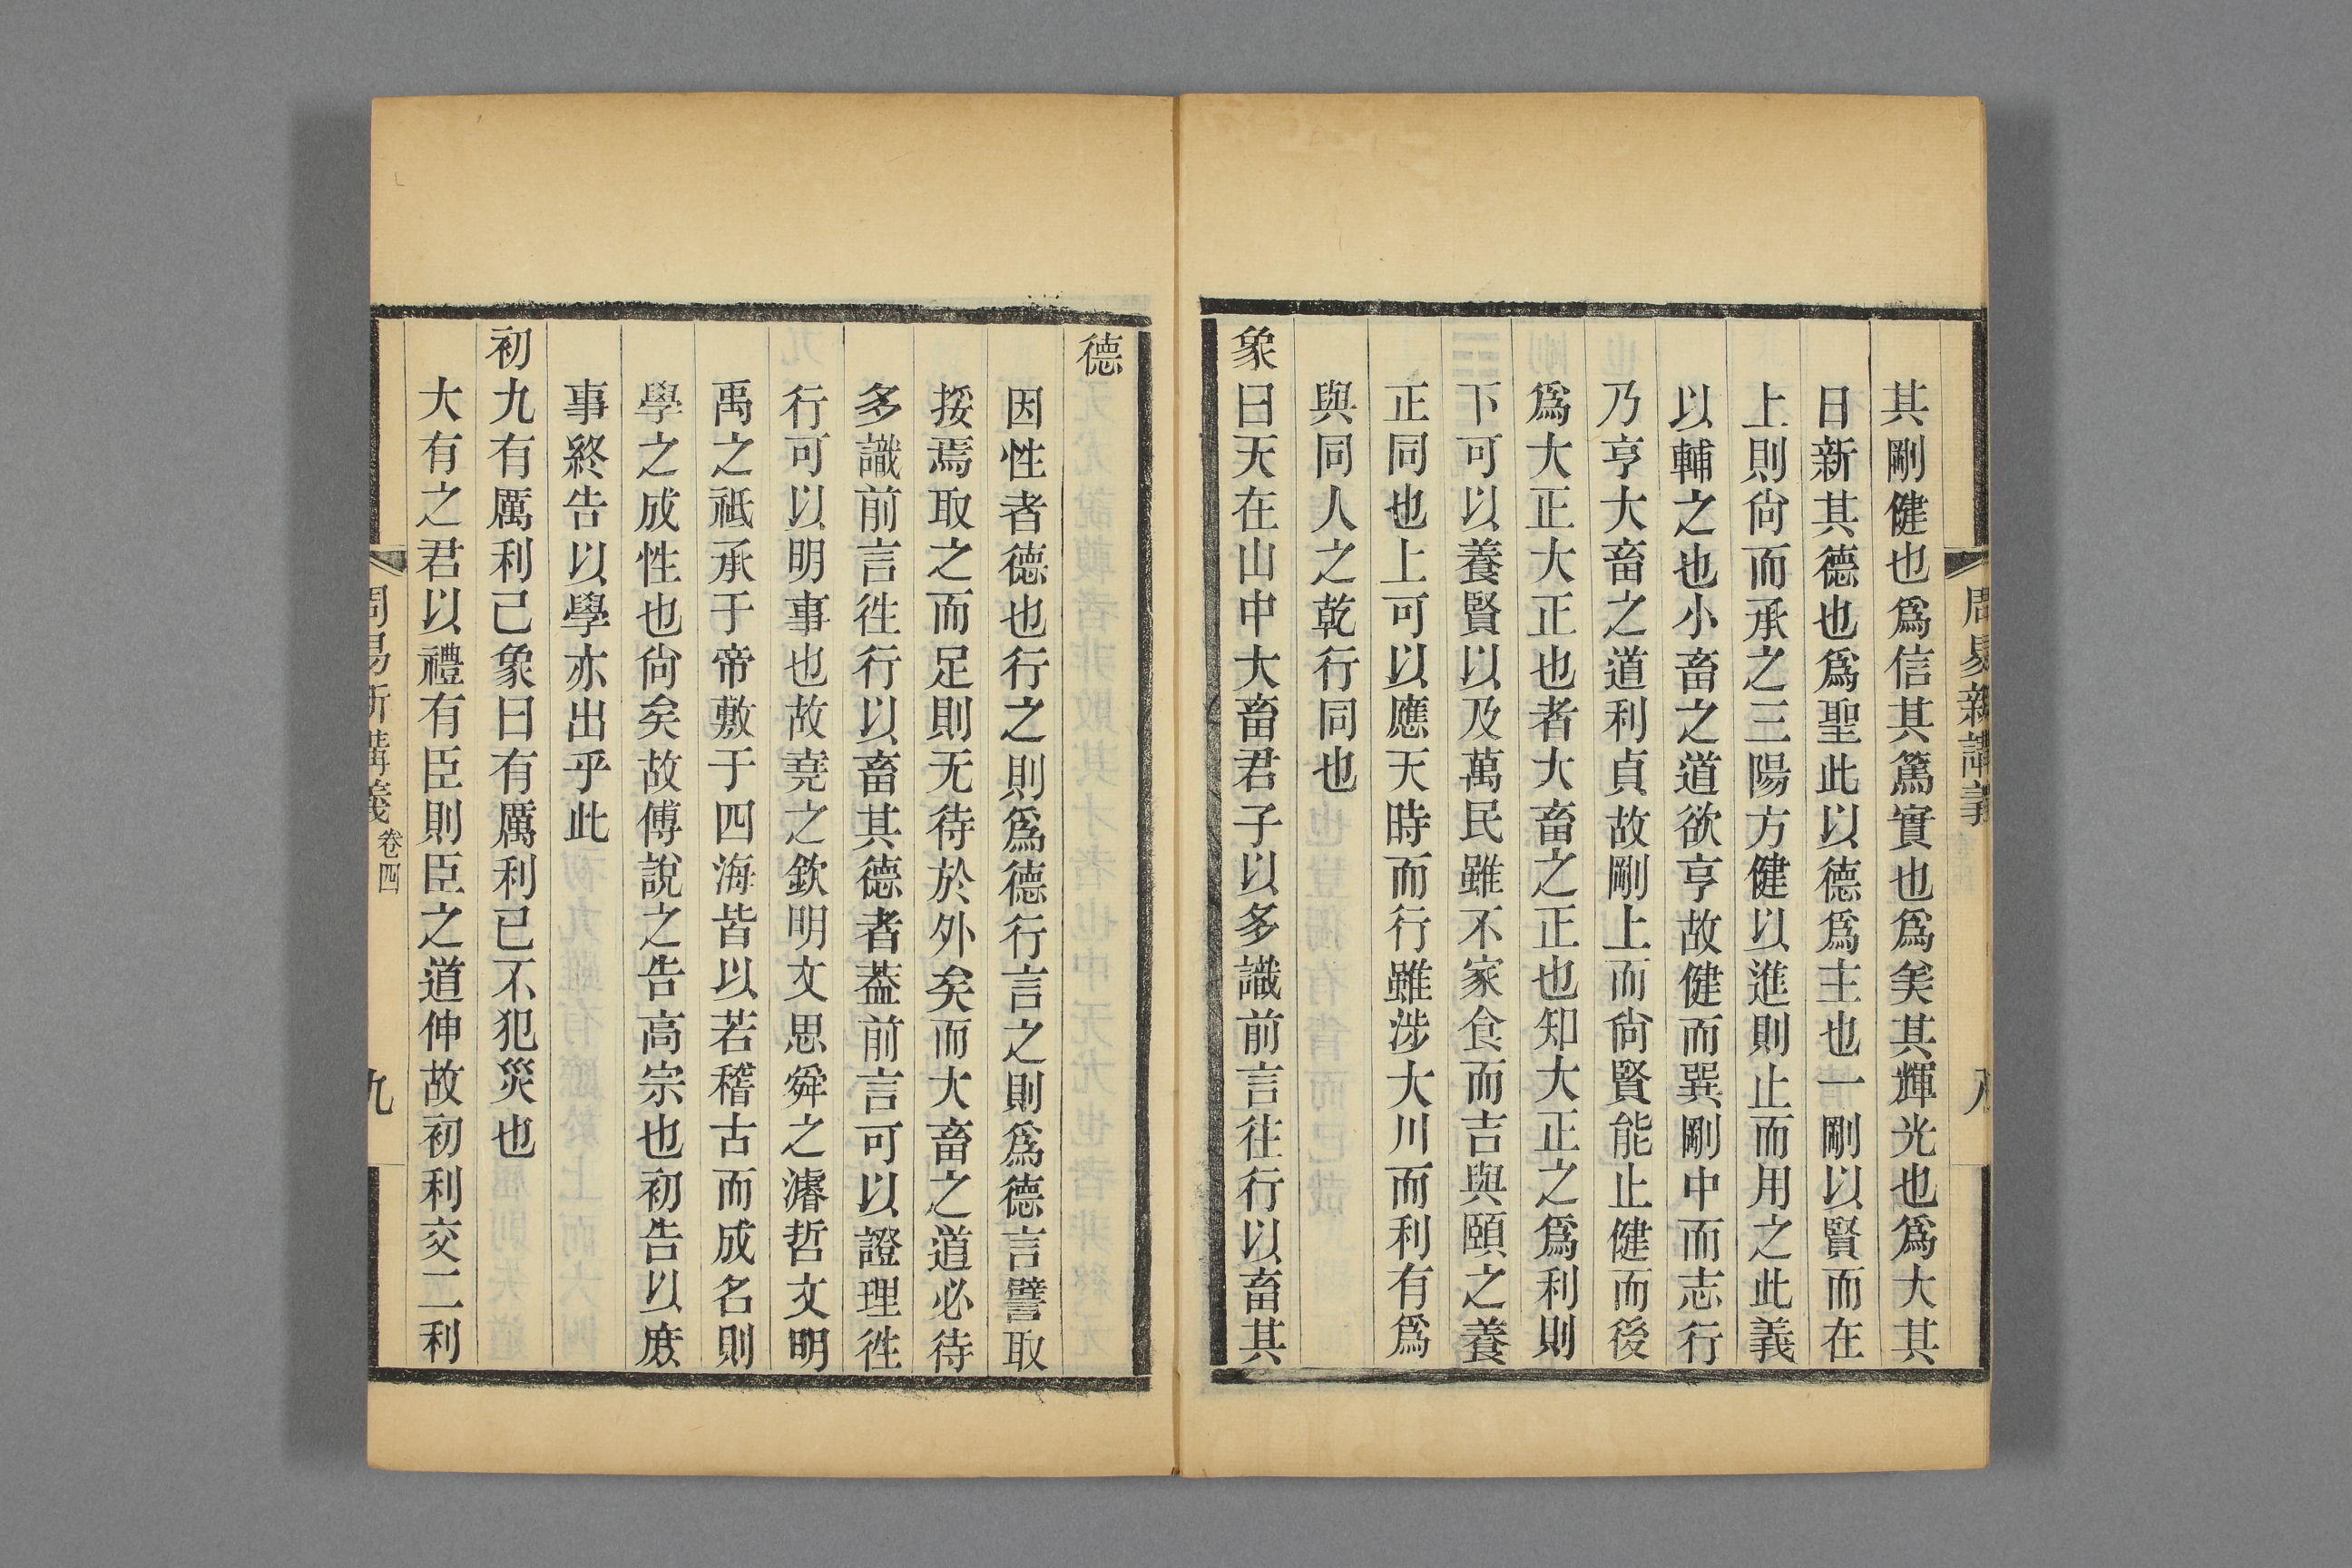 周易新講義
八
其剛健也爲信其篤實也爲矣其輝光也爲大其
日新其德也爲聖此以德爲主也一剛以賢而在
上則尙而承之三陽方健以進則止而用之此義
以輔之也小畜之道欲亨故健而巽剛中而志行
乃亨大畜之道利貞故剛上而尙賢能止健而後
爲大正大正也者大畜之正也知大正之爲利則
下可以養賢以及萬民雖不家食而吉與頤之養
正同也上可以應天時而行雖涉大川而利有爲
與同人之乾行同也
象曰天在山中大畜君子以多識前言往行以畜其
德
因性者德也行之則爲德行言之則爲德言譬取
挼焉取之而足則无待於外矣而大畜之道必待
多識前言徃行以畜其德者葢前言可以證理徃
行可以明事也故堯之欽明文思舜之濬哲文明
禹之祗承于帝敷于四海皆以若稽古而成名則
學之成性也尙矣故傅說之告高宗也初告以庻
事終告以學亦出乎此
初九有厲利已象曰有厲利已不犯災也
大有之君以禮有臣則臣之道伸故初利交二利
周易新講義
卷四
九